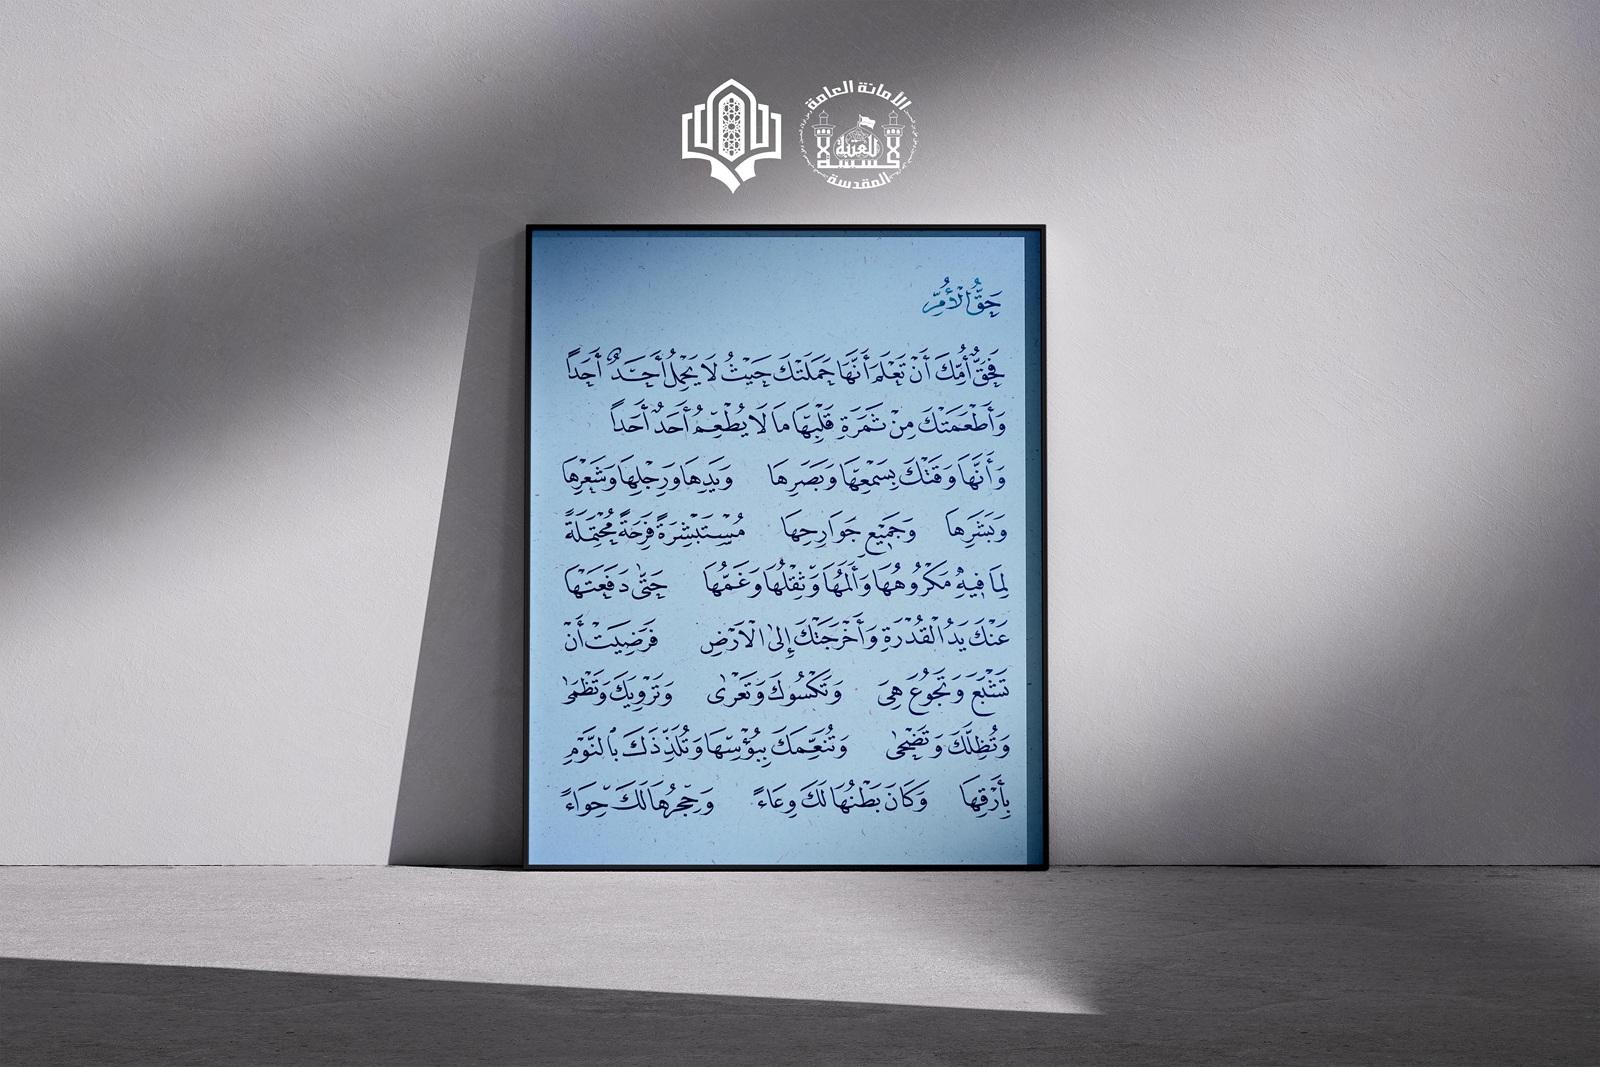 الأمانة العامة
للعتبة
الحسينية
المقدسة
حَقُّ الأُمِّ
فَحَقُّ أُمِّكَ أَنْ تَعْلَمَ أَنَّهَا حَمَلَتْكَ حَيْثُ لَا يَحْمِلُ أَحَدٌ أَحَداً
وَأَطْعَمَتْكَ مِنْ ثَمَرَةِ قَلْبِهَا مَا لَا يُطْعِمُ أَحَدٌ أَحَداً
وَأَنَّهَا وَقَتْكَ بِسَمْعِهَا وَبَصَرِهَا وَيَدِهَا وَرِجْلِهَا وَشَعْرِهَا
وَبَشَرِهَا وَجَمِيْعِ جَوَارِحِهَا مُسْتَبْشِرَةً فَرِحَةً مُحْتَمِلَةً
لِمَا فِيهِ مَكْرُوهُهَا وَأَلَمُهَا وَثِقْلُهَا وَغَمُّهَا حَتَّى دَفَعَتْهَا
عَنْكَ يَدُ الْقُدْرَةِ وَأَخْرَجَتْكَ إِلَى الْأَرْضِ فَرَضِيَتْ أَنْ
تَشْبَعَ وَتَجُوعَ هِيَ وَتَكْسُوكَ وَتَعْرَى وَتُرْوِيَكَ وَتَظْمَى
وَتُظِلَّكَ وَتَضْحَى وَتُنَعِّمَكَ بِبُؤْسِهَا وَتُلَذِّذَكَ بِالنَّوْمِ
بِأَرَقِهَا وَكَانَ بَطْنُهَا لَكَ وِعَاءً وَحِجْرُهَا لَكَ حِوَاءً